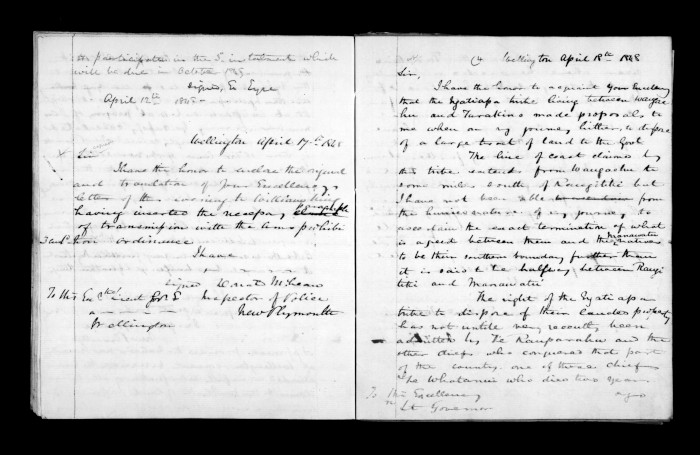 to participate in the 5. instalment which
will be due in October 1849
signed, E. Eyre
April 12th 1848
Wellington April 17th 1848
Sir
I have the honor to enclose the original
and translation of your Excellency's
letter of this evening to William King
having inserted the necessary paragraph
of transmission with the Arms prohibi
tion ordinance
I have
signed Donald McLean
Inspector of Police
New Plymouth
To His
Wellington
Wellington April 18th 1848
Sir,
I have the honor to acquaint Your Excellency
that the Ngatiapa tribe living between Wanga
nui and Turakina made proposals to
me when on my journey hither, to dispose
of a large tract of land to the Govt
The line of coast claimed by
this tribe extends from Wangaehu to
some miles south of Rangitiki but
I have not been able from
the hurried nature of my journey to
ascertain the exact termination of what
is agreed between them and the Manawatu natives
to be their southern boundary further than
it is said to be halfway between Rangi
tiki and Manawatu
The right of the Ngatiapa
tribe to dispose of these lands
has not until very recently been
admitted by Te Rauparaha and the
other chiefs who conquered that part
of the country. one of these chiefs
Te Whatanui who died two years
ago
To His Excellency
Lt Governor